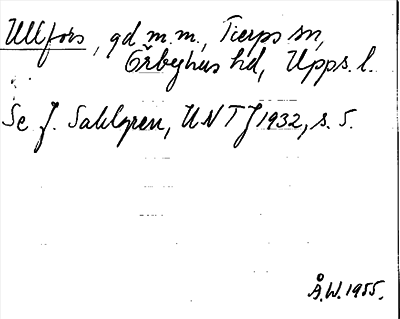 Ullfors, gd m.m., Tierps sn,
Örbyhus hd, Upps. l.
Se J. Sahlgren, UNTJ 1932, s. 5.
Å.W. 1955.